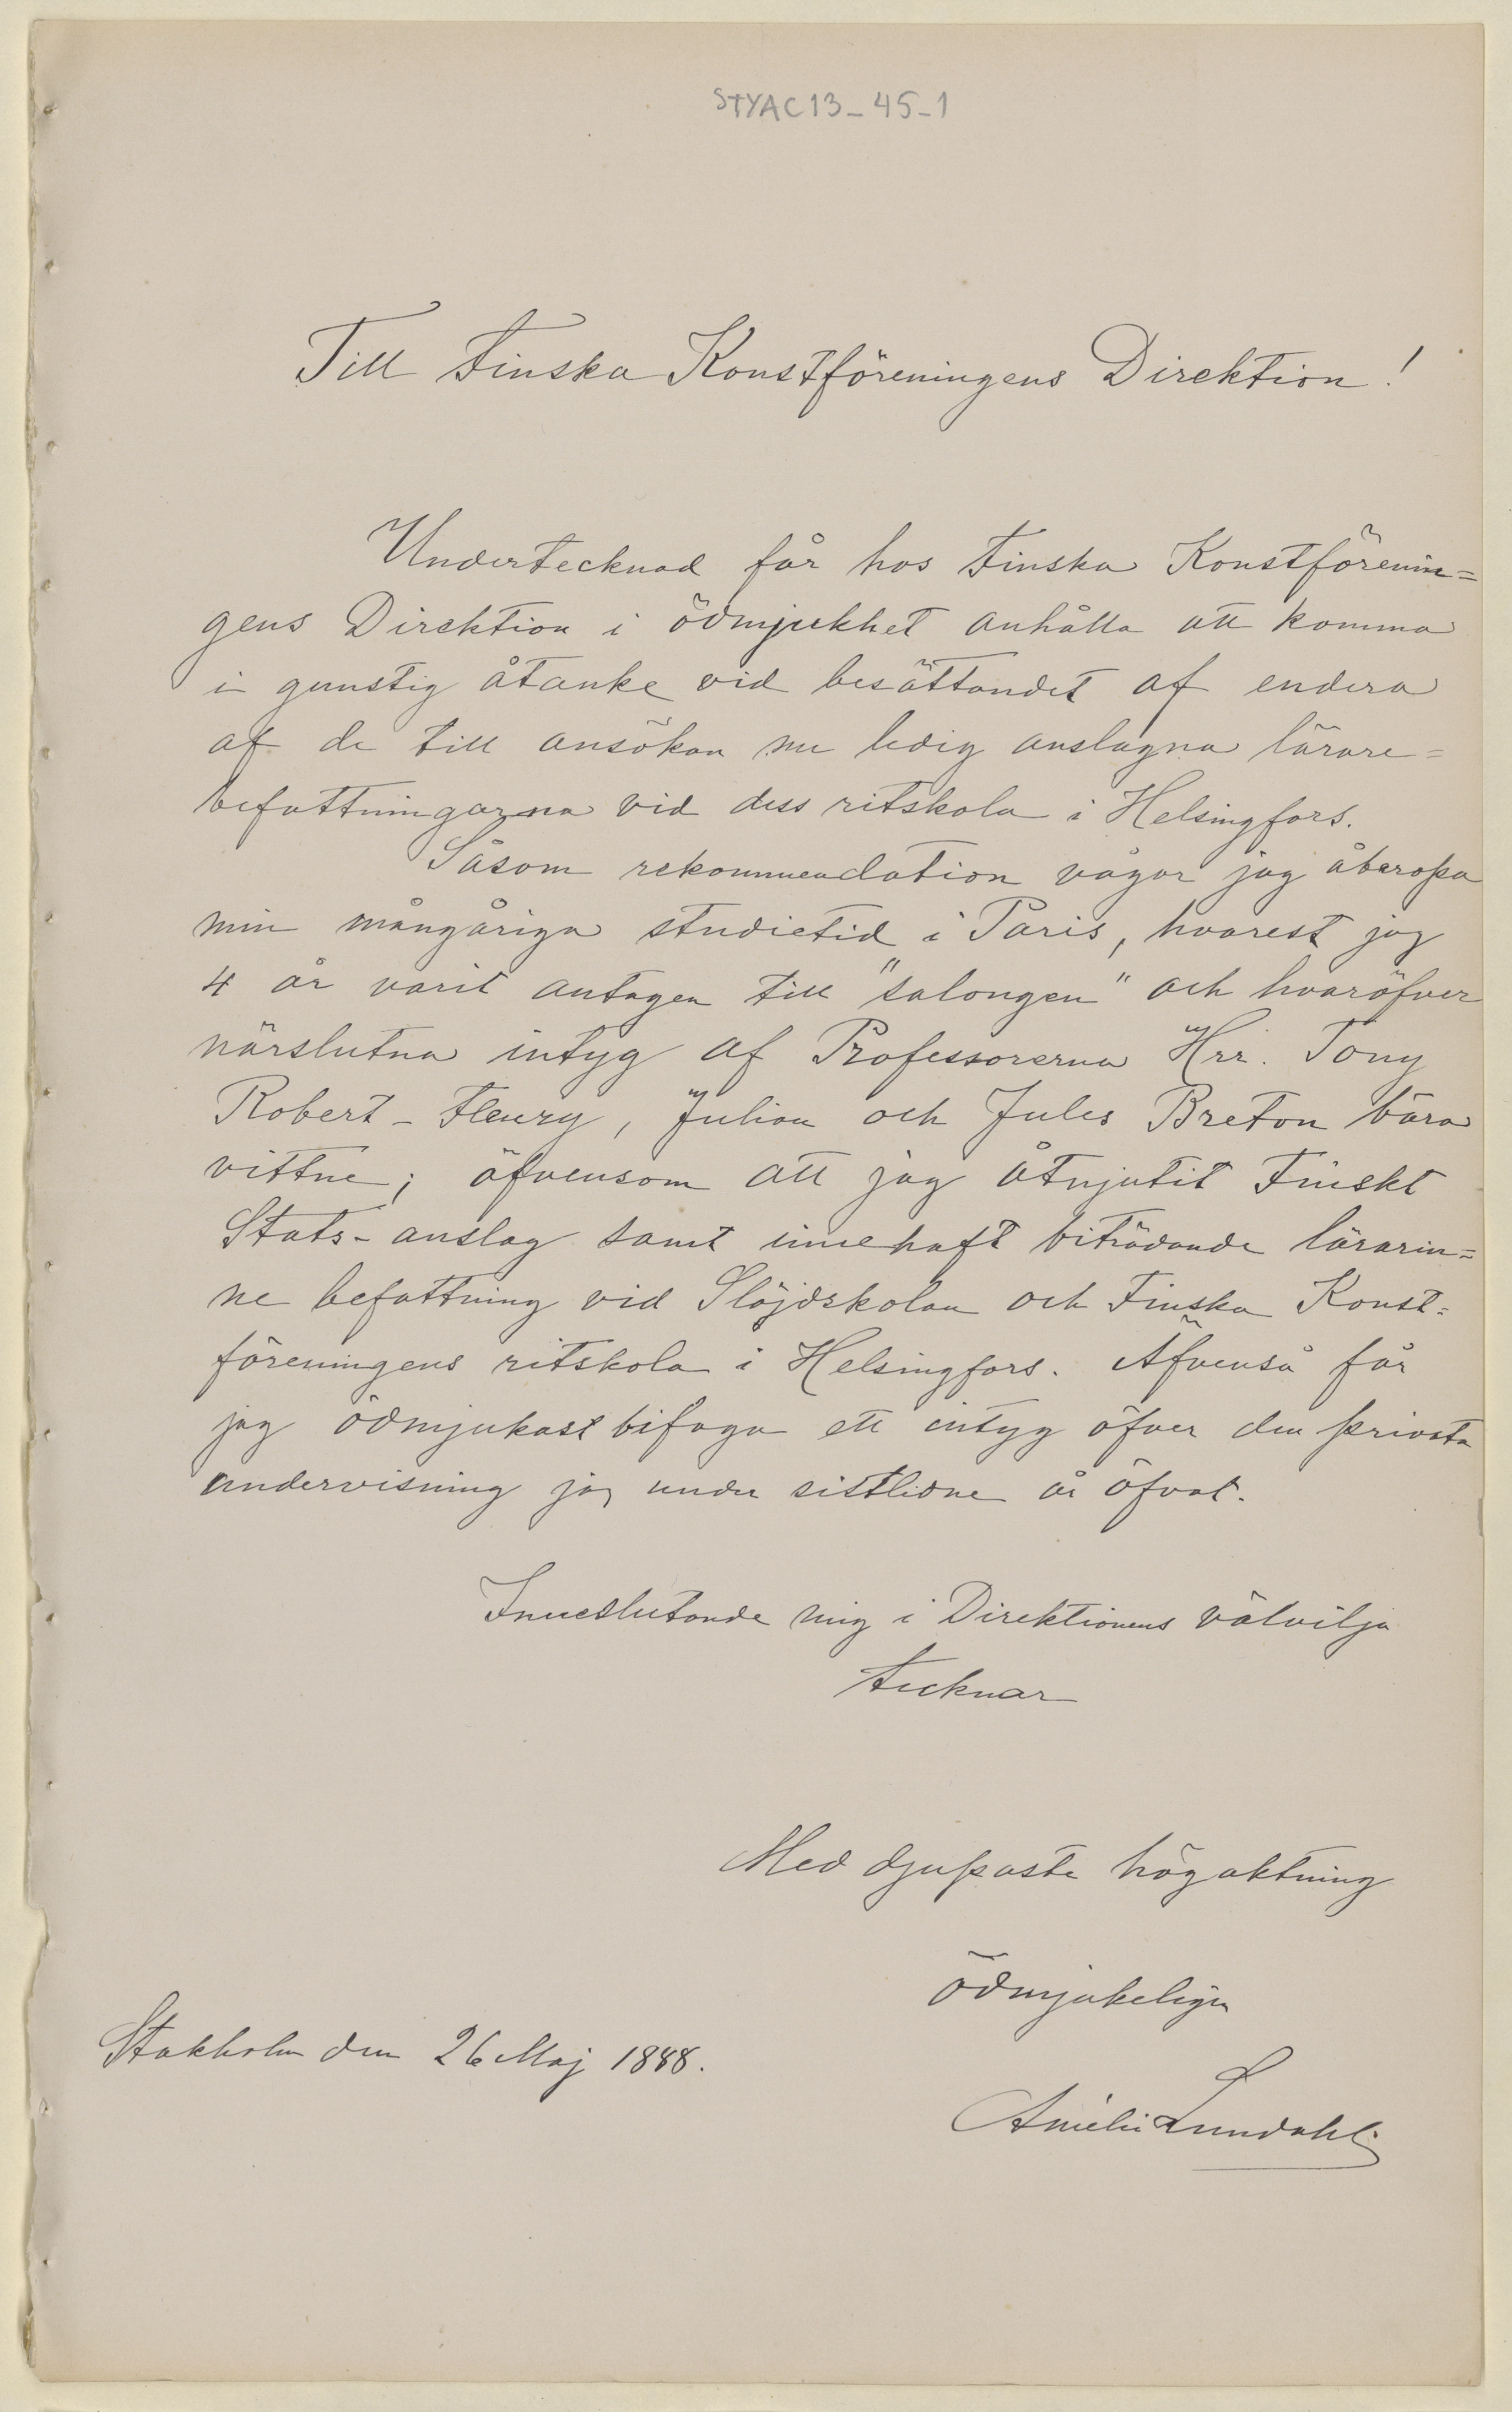 STYAC13_45_1
Till Finska Konstföreningens Direktion!
Undertecknad får hos Finska Konstförenin=
gens Direktion i ödmjukhet anhålla att komma
i gunstig åtanke vid besättandet af endera
af de till ansökan nu ledig anslagna lärare=
befattningarna vid dess ritskola i Helsingfors.
Såsom rekommendation vågar jag åberopa
min mångåriga studietid i Paris, hvarest jag
4 år varit antagen till "salongen" och hvaröfver
närslutna intyg af Professorerna Hrr. Tony
Robert-Fleury, Julian och Jules Breton bära
vittne; äfvensom att jag åtnjutit Finskt
Stats-anslag samt innehaft biträdande lärarin=
ne befattning vid Slöjdskolan och Finska Konst=
föreningens ritskola i Helsingfors. Äfvenså får
jag ödmjukast bifoga ett intyg öfver den privata
undervisning jag under sistlidne år öfvat.
Inneslutande mig i Direktionens välvilja
tecknar
Med djupaste högaktning
ödmjukeligen
Stokholm den 26 Maj 1888.
Amélie Lundahl